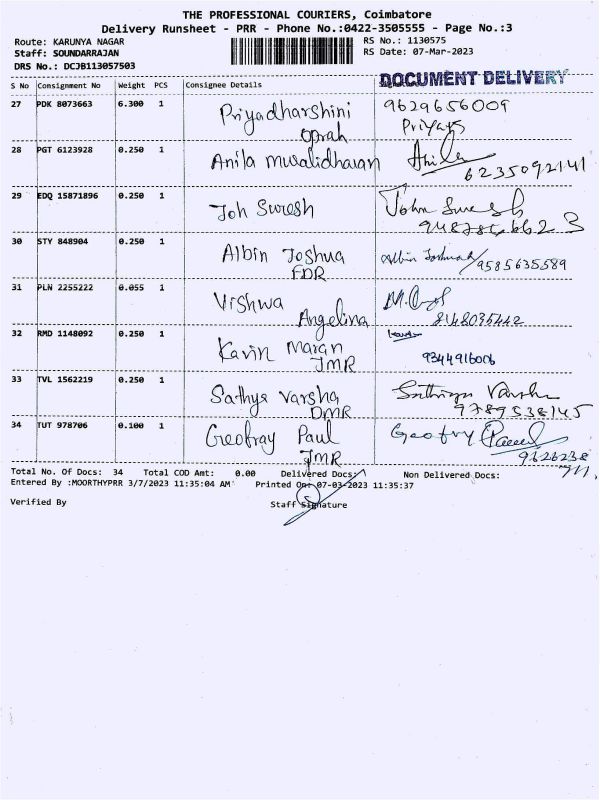 THE PROFESSIONAL COURIERS, Coimbatore
Delivery Runsheet - PRR - Phone No.:0422-3505555 - Page No.:3
Route: KARUNYA NAGAR RS No.: 1130575
Staff: SOUNDARRAJAN RS Date: 07-Mar-2023
DRS No.: DCJB113057503
DOCUMENT DELIVERY
S No Consignment No Weight PCS Consignee Details
27 PDK 8073663 6.300 1 Priyadharshini 9629656009
Oprah Priya
28 PGT 6123928 0.250 1 Anila muralidharan Anila
6235092141
29 EDQ 15871896 0.250 1 Joh Suresh John Suresh
30 STY 848904 0.250 1 Albin Joshua Albin Joshua/9585635589
FDR
31 PLN 2255222 0.055 1 Vishwa
Angelina 8148035442
32 RMD 1148092 0.250 1 Kavin Maran
JMR 9344916006
33 TVL 1562219 0.250 1 Sathya varsha Sathya Varsha
DMR 9789538145
34 TUT 978706 0.100 1 Geofray Paul Geofry Paul
JMR 9626238
Total No. Of Docs: 34 Total COD Amt: 0.00 Delivered Docs: Non Delivered Docs:
Entered By :MOORTHYPRR 3/7/2023 11:35:04 AM Printed On: 07-03-2023 11:35:37
Verified By Staff Signature